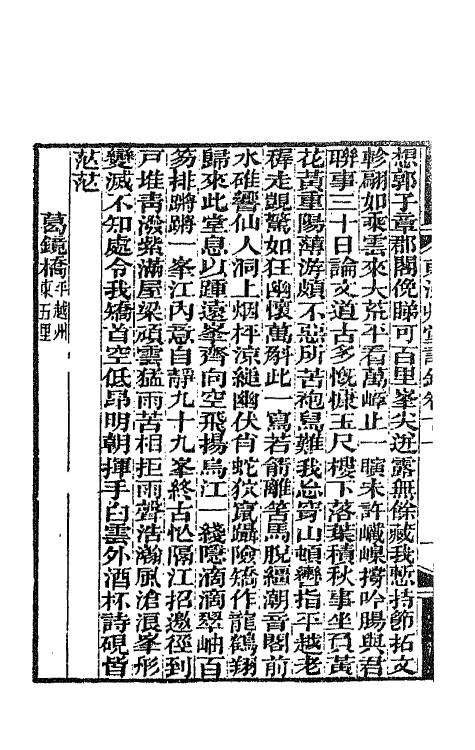 想郭子章郡閣俛睇可百里峯尖迸露無餘藏我慙持節拓文
軫翮如乘雲來大荒平看萬峰止一瞚未許巇嵲搒吟腸與君
聯事三十日論文道古多慨慷玉尺樓下落葉積秋事坐負黃
花黃重陽薄游頗不惡所苦袍舄難我怠穿山頓轡指平越老
稺走覬驚如狂幽懷萬斛此一寫若箭離筈馬脫繮潮音閣前
水碓響仙人洞上烟枰涼縋幽伏肯蛇狖竄躡險矯作龍鶴翔
歸來此堂息以踵遠峯齊向空飛揚烏江一綫隱滴滴翠岫百
笏排蹡蹡一峯江內意自靜九十九峯終古忙隔江招邀徑到
戸堆靑潑紫滿屋梁頑雲猛雨苦相拒雨聲浩瀚風滄浪峯形
變滅不知處令我矯首空低昻明朝揮手白雲外酒杯詩硯皆
茫茫
葛鏡橋平越州東五里